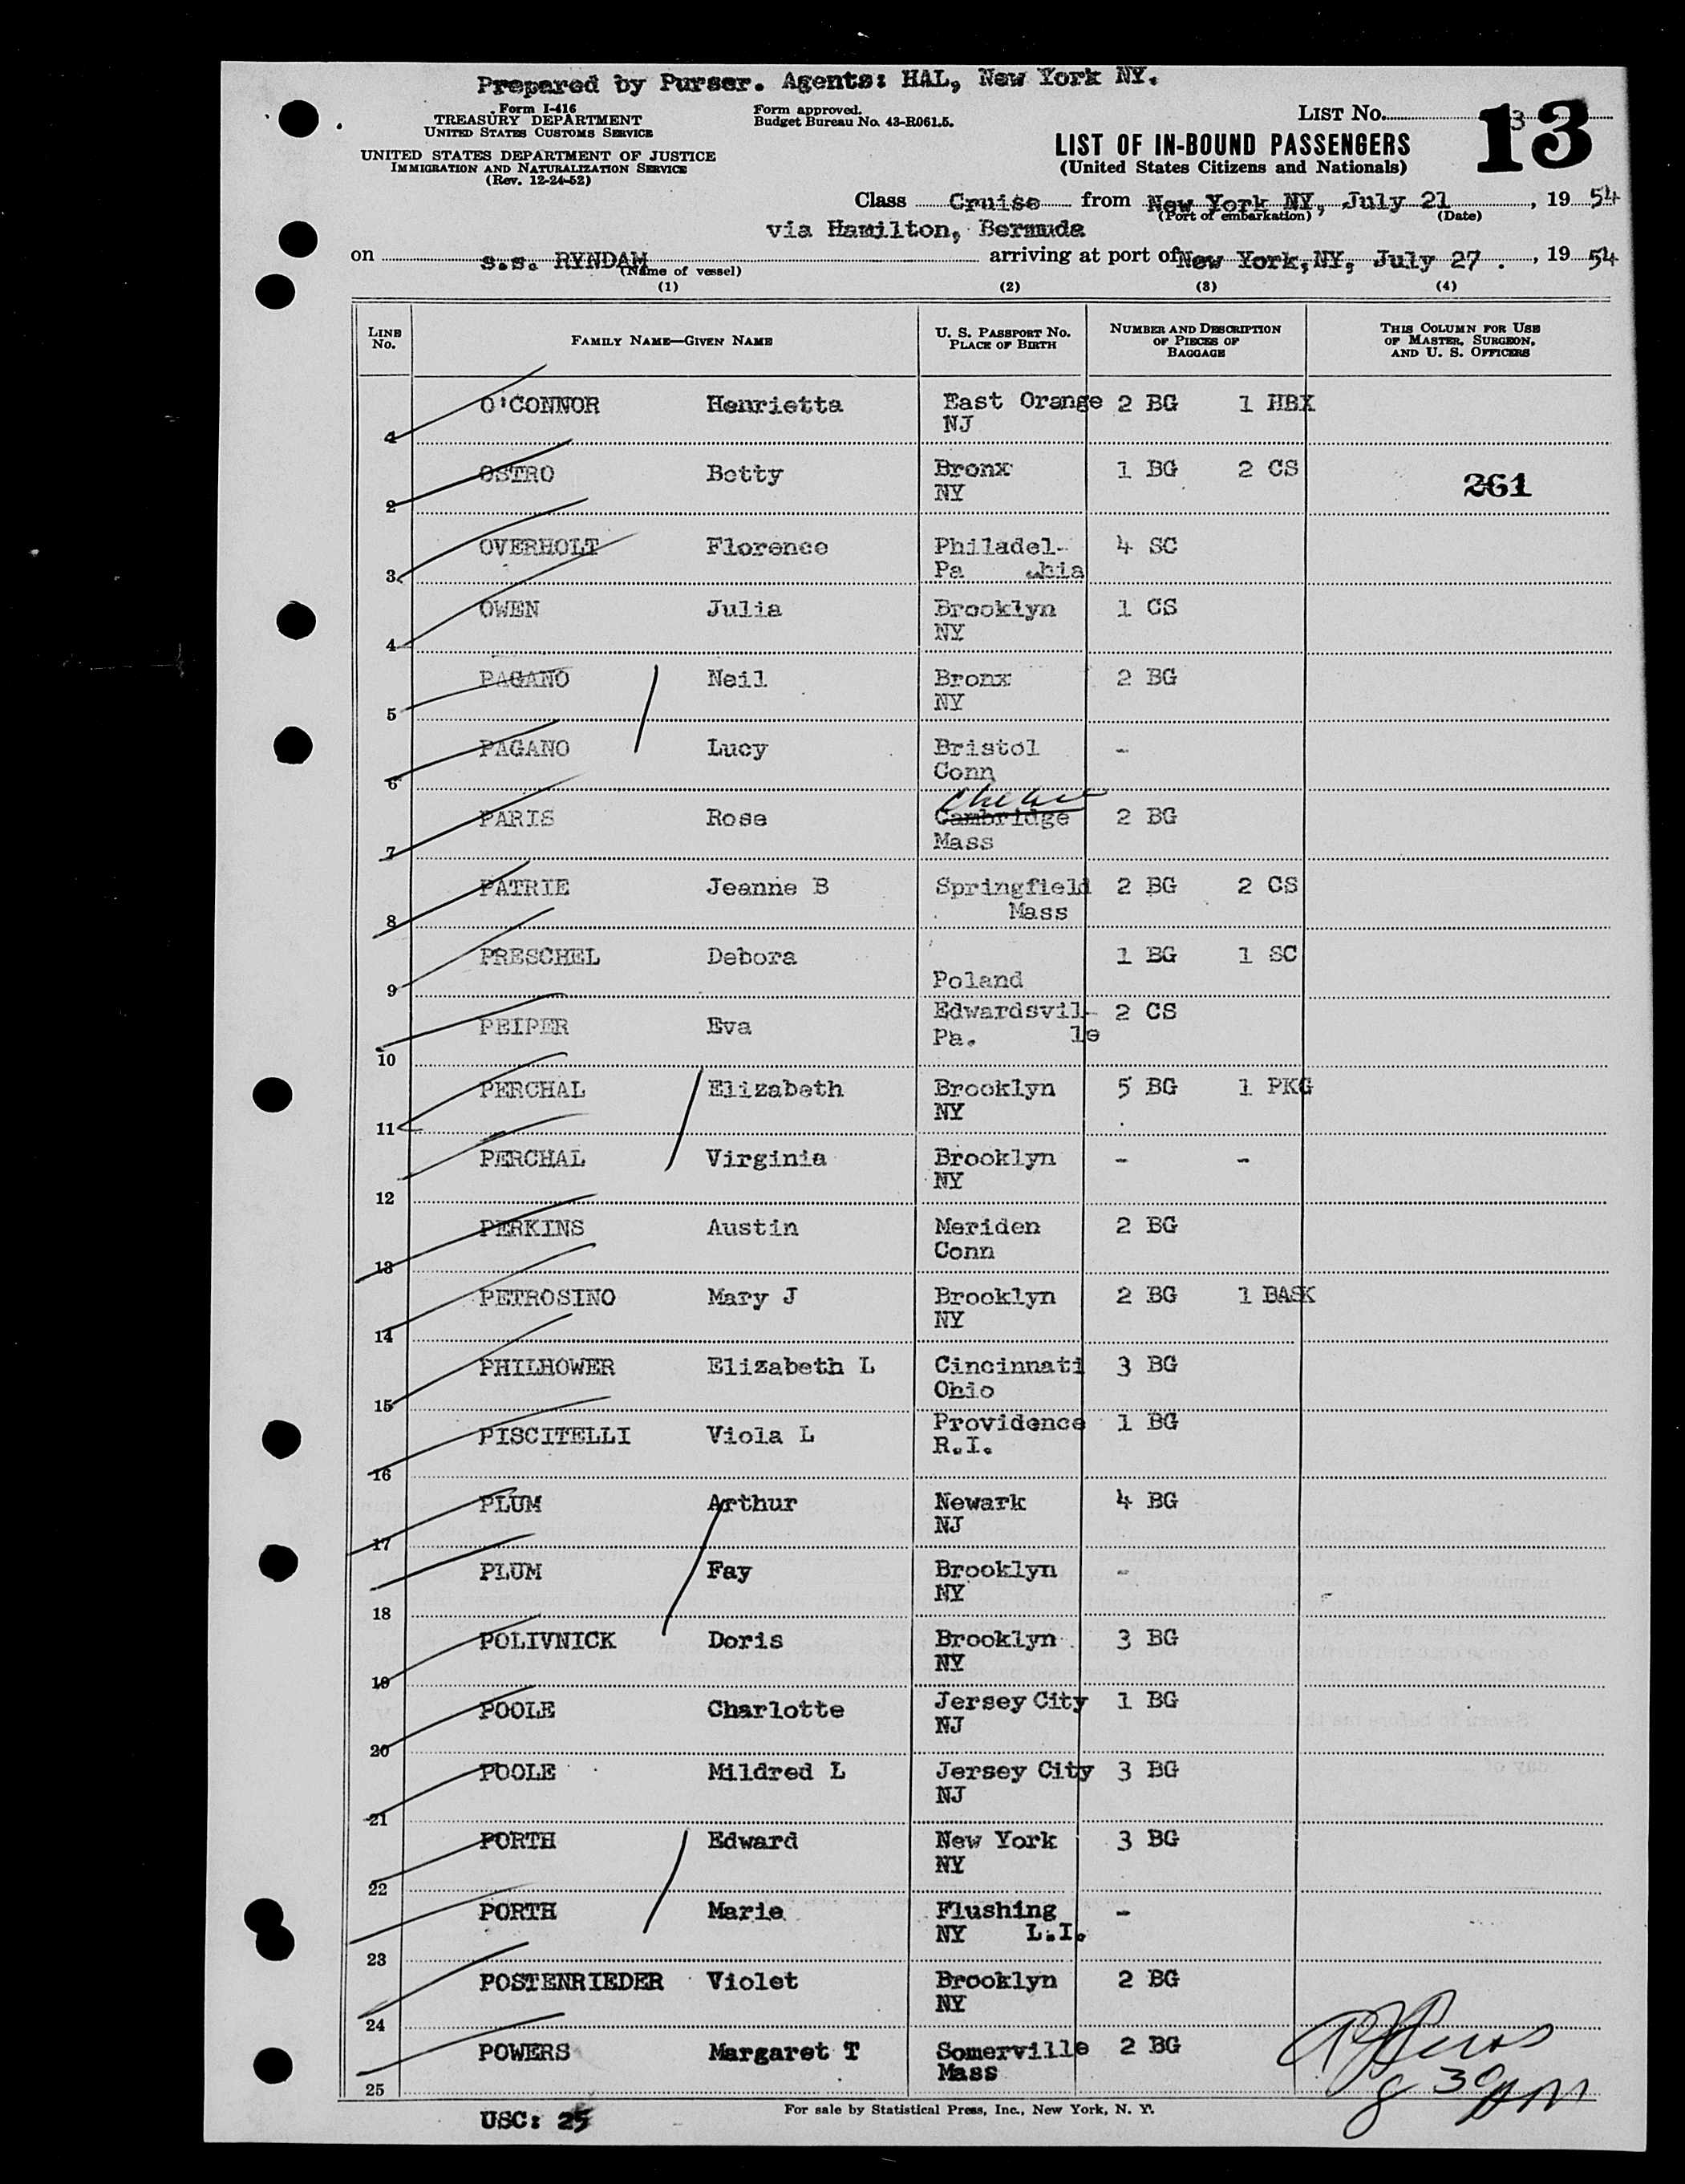 Prepared by Purser. Agents: HAL, New York NY.
Form I-416
TREASURY DEPARTMENT
UNITED STATES CUSTOMS SERVICE
UNITED STATES DEPARTMENT OF JUSTICE
IMMIGRATION AND NATURALIZATION SERVICE
(Rev. 12-24-52)
Form approved.
Budget Bureau No. 43-R061.5.
LIST No. 3 13
LIST OF IN-BOUND PASSENGERS
(United States Citizens and Nationals)
Class Cruise from New York NY, July 21, 19 54
(Port of embarkation) (Date)
via Hamilton, Bermuda
on s.s. RYNDAM arriving at port of New York, NY, July 27 . , 19 54
(Name of vessel)
(1) (2) (3) (4)
LINE No. FAMILY NAME—GIVEN NAME U. S. PASSPORT No. PLACE OF BIRTH NUMBER AND DESCRIPTION OF PIECES OF BAGGAGE THIS COLUMN FOR USE OF MASTER, SURGEON, AND U. S. OFFICERS
O'CONNOR Henrietta East Orange 2 BG 1 HBX
1 NJ
OSTRO Betty Bronx 1 BG 2 CS 261
2 NY
OVERHOLT Florence Philadel- 4 SC
3 Pa phia
OWEN Julia Brooklyn 1 CS
4 NY
PAGANO Neil Bronx 2 BG
5 NY
PAGANO Lucy Bristol -
6 Conn
PARIS Rose Cambridge 2 BG
7 Mass
PATRIE Jeanne B Springfield 2 BG 2 CS
8 Mass
PRESCHEL Debora 1 BG 1 SC
9 Poland
PEIPER Eva Edwardsvil- 2 CS
10 Pa. le
PERCHAL Elizabeth Brooklyn 5 BG 1 PKG
11 NY
PERCHAL Virginia Brooklyn - -
12 NY
PERKINS Austin Meriden 2 BG
13 Conn
PETROSINO Mary J Brooklyn 2 BG 1 BASK
14 NY
PHILHOWER Elizabeth L Cincinnati 3 BG
15 Ohio
PISCITELLI Viola L Providence 1 BG
16 R.I.
PLUM Arthur Newark 4 BG
17 NJ
PLUM Fay Brooklyn -
18 NY
POLIVNICK Doris Brooklyn 3 BG
19 NY
POOLE Charlotte Jersey City 1 BG
20 NJ
POOLE Mildred L Jersey City 3 BG
21 NJ
PORTH Edward New York 3 BG
22 NY
PORTH Marie Flushing -
23 NY L.I.
POSTENRIEDER Violet Brooklyn 2 BG
24 NY
POWERS Margaret T Somerville 2 BG
25 Mass
8 30 PM
USC: 25
For sale by Statistical Press, Inc., New York, N. Y.